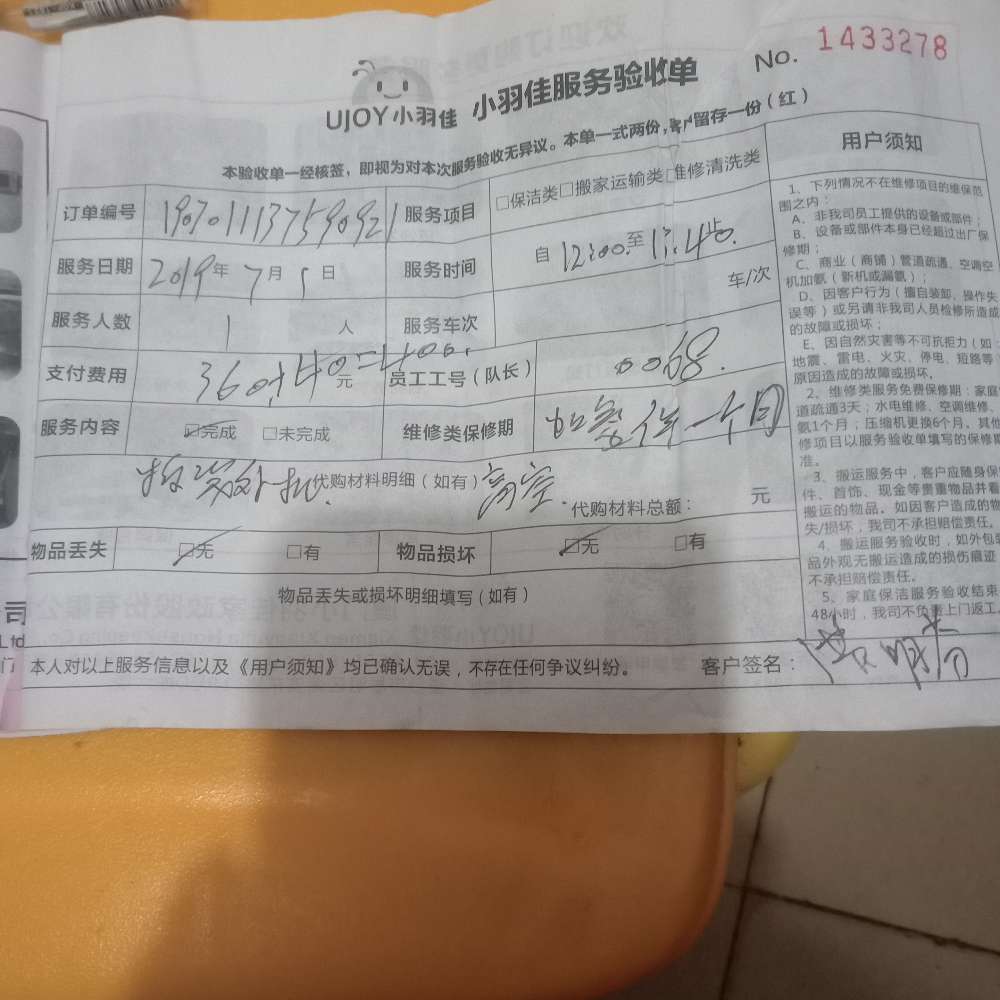 No. 1433278
UJOY小羽佳 小羽佳服务验收单
本验收单一经核签，即视为对本次服务验收无异议。本单一式两份，客户留存一份（红）
订单编号 服务项目 □保洁类□搬家运输类□维修清洗类
服务日期 2019年7月 日 服务时间 自12:00至
服务人数 1 人 服务车次 车/次
支付费用 360+40=400. 元 员工工号（队长） 0068.
服务内容 ☑完成 □未完成 维修类保修期 加氨 一个月
代购材料明细（如有） 高空. 代购材料总额： 元
物品丢失 ☑无 □有 物品损坏 ☑无 □有
物品丢失或损坏明细填写（如有）
本人对以上服务信息以及《用户须知》均已确认无误，不存在任何争议纠纷。 客户签名：
用户须知
1、下列情况不在维修项目的维保范
围之内：
A、非我司员工提供的设备或部件；
B、设备或部件本身已经超过出厂保
修期；
C、商业（商铺）管道疏通、空调空
机加氨（新机或漏氨）；
D、因客户行为（擅自装卸、操作失
误等）或另请非我司人员检修所造成
的故障或损坏；
E、因自然灾害等不可抗拒力（如：
地震、雷电、火灾、停电、短路等
原因造成的故障或损坏。
2、维修类服务免费保修期：家庭
道疏通3天；水电维修、空调维修、
氨1个月；压缩机更换6个月、其他
修项目以服务验收单填写的保修期
准。
3、搬运服务中，客户应随身保
件、首饰、现金等贵重物品并看
搬运的物品。如因客户造成的物
失/损坏，我司不承担赔偿责任。
4、搬运服务验收时，如外包装
品外观无搬运造成的损伤痕迹
不承担赔偿责任。
5、家庭保洁服务验收结束
48小时，我司不负责上门返工
司
Ltd
门